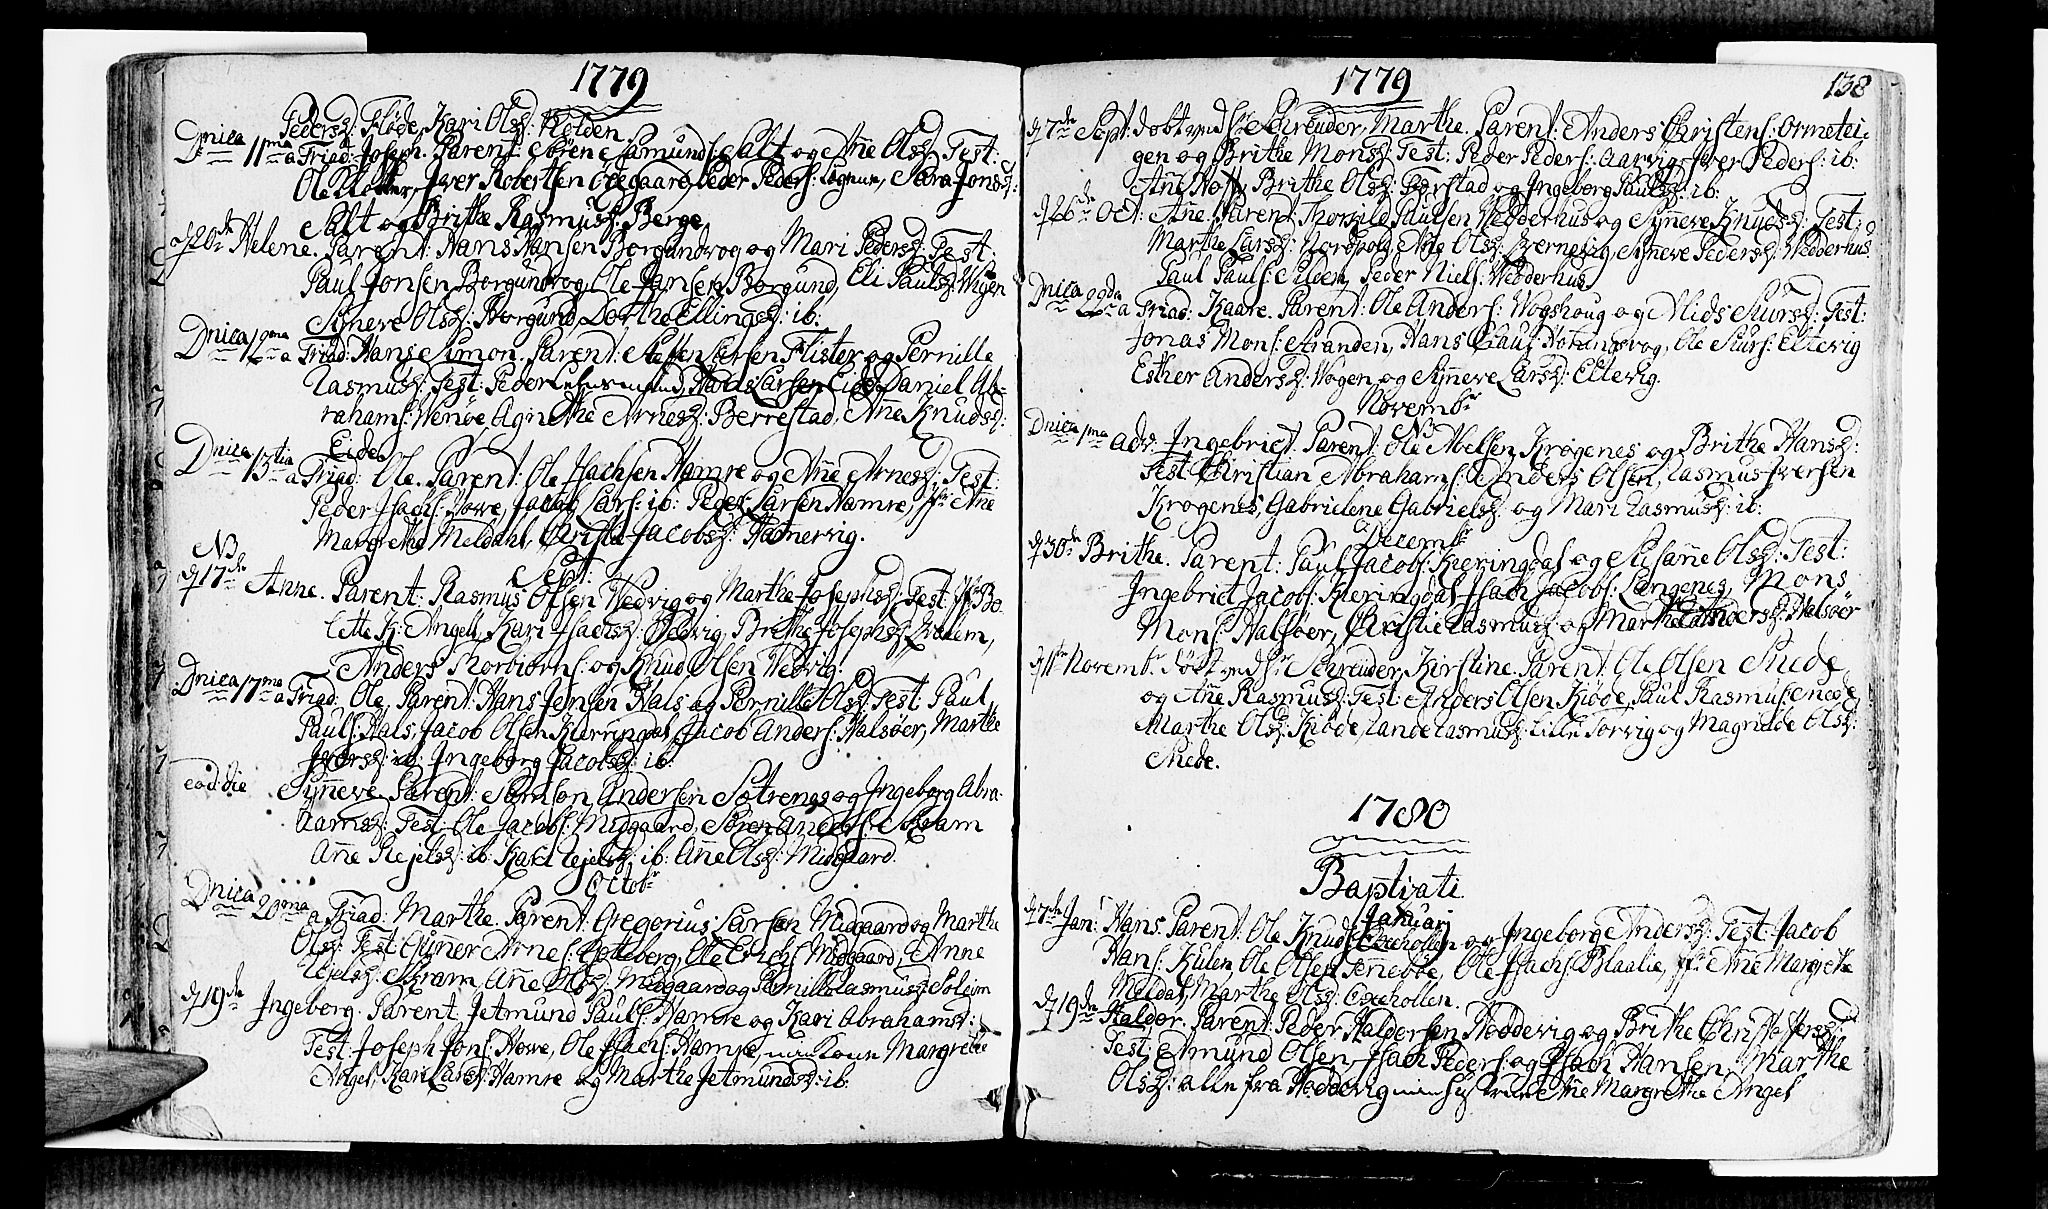 1779
Peders: Fløde, Kari Olsd: Holden
Dnica 11ma a Triad: Joseph. Parent: Sören Samunds: Salt og Añe Olsd: Test:
Ole Klokker, Iver Robertsen Oregaard, Peder Peders: Sognus, Sara Jonsd:
Salt og Brithe Rasmusd: Berge
d 20de Helene. Parent: Hans Hansen Borgundvog og Mari Pedersd: Test:
Paul Jonsen Borgundvog, Ole Jansen Borgund, Eli Paulsd: Wogen
Syneve Olsd: Borgund, Dorthe Ellingsd: ib:
Dnica 12ma a Triad: Hans Simon. Parent: Steffen Larsen Flister og Pernille
Rasmusd: Test: Peder Larsen Eide, Daniel Ab-
rahams: Wenøe, Agnethe Arnesd: Berrestad, Añe Knudsd:
Eide
Dnica 13tia a Triad: Ole. Parent: Ole Isachsen Hamre og Añe Arnesd: Test:
Peder Isachs: Howe, Jacob Lars: ib: Peder Larsen Hamre, Jfr: Añe
Margretha Meldahl, Christie Jacobsd: Hamervig.
NB
Sept:
d 17de Anne. Parent: Rasmus Olsen Wedvig og Marthe Josephsd: Test: Jfr Bo-
lette K: Angell, Kari Isachsd: Wedvig, Brithe Josephsd: Qvalem,
Anders Thorbiørns: og Knud Olsen Wedvig.
Dnica 17ma a Triad: Ole, Parent: Hans Jensen Hals og Pernille Olsd: Test: Paul
Pauls: Hals, Jacob Olsen Kierringdal, Jacob Anders: Halsøer, Marthe
Iversd: ib: Ingeborg Jacobsd: ib:
eod: die Syñeve. Parent: Samson Andersen Sotrenes og Ingeborg Abra-
hamsd: Test: Ole Jacobs: Midgaard, Sören Anders: Skram
Añe Rejelsd: ib: Kari Rejelsd: ib: Añe Olsd: Midgaard.
Octobr
Dnica 20ma a Triad: Marthe. Parent: Gregorius Larsen Midgaard og Marthe
Olsd: Test: Gunner Arnes: Gotteberg, Ole Erichs: Midgaard, Anne
Rejelsd: Skram, Añe Olsd: Midgaard og Pernille Rasmusd: Soleim
d 19de Ingeborg. Parent. Jetmund Pauls: Hamre og Kari Abrahamsd:
Test: Joseph Jons: Howe, Ole Isachs: Hamre, min Kone Margrethe
Angel, Kari Larsd: Hamre og Marthe Jetmundsd: ib:
1779
138
d 7de Sept: døbt ved Hr Schreuder, Marthe. Parent: Anders Christens: Ormetei-
gen og Brithe Monsd: Test: Peder Peders: Aarvig, Iver Peders: ib:
Añe Hoff, Brithe Olsd: Barstad og Ingeborg Paulsd: ib:
d 26de Oct: Añe. Parent: Thorkild Paulsen Wedderhus og Syñeve Knudsd: Test:
Marthe Larsd: Nordpold, Añe Olsd: Berneviig, Syñeve Pedersd: Wedderhus
Paul Pauls: Silden, Peder Niels: Wedderhus
Dnica 22da a Triad: Kaare. Parent: Ole Anders: Wogshoug og Alids Siursd: Test:
Jonas Mons: Stranden, Hans Claus: Horningvog, Ole Siurs: Eltevig
Esther Andersd: Wogen og Syñeve Larsd: Eltevig.
Novembr
NB
Dnica 1ma adv: Ingebrict. Parent: Ole Abelsen Krogenes og Brithe Hansd:
Test: Christian Abrahams: Anders Olsen, Rasmus Iversen
Krogenes, Gabrielene Gabrielsd: og Mari Rasmusd: ib:
Decembr
d 30de Brithe. Parent: Paul Jacobs: Kieringdal og Susañe Olsd: Test:
Ingebrict Jacobs: Kieringdal, Isach Jacobs: Langenes, Mons
Mons: Halsøer, Christie Rasmusd: og Marthe Andersd: Halsöer
d 11te Novembr døbt ved Hr Schreuder, Kirstine. Parent: Ole Olsen Skede
og Añe Rasmusd: Test: Anders Olsen Kiøde, Paul Rasmus: Skede
Marthe Olsd: Kiøde, Rande Rasmusd: Lille Torvig og Magrelde Olsd:
Skede.
1780
Baptizati
Januarj
d 7de Jan: Hans. Parent: Ole Knuds: Oxehollen og Ingeborg Andersd: Test: Jacob
Hans: Kulen, Ole Olsen Señeböe, Ole Isachs: Blaalie, Jfr: Añe Margrethe
Meldal, Marthe Olsd: Oxehollen.
d 19de Haldor. Parent: Peder Haldorsen Hoddevig og Brithe Christoffersd:
Test: Amund Olsen, Isach Peders: og Isach Hansen, Marthe
Olsd: alle fra Hoddevig min Hustrue Añe Margrethe Angel